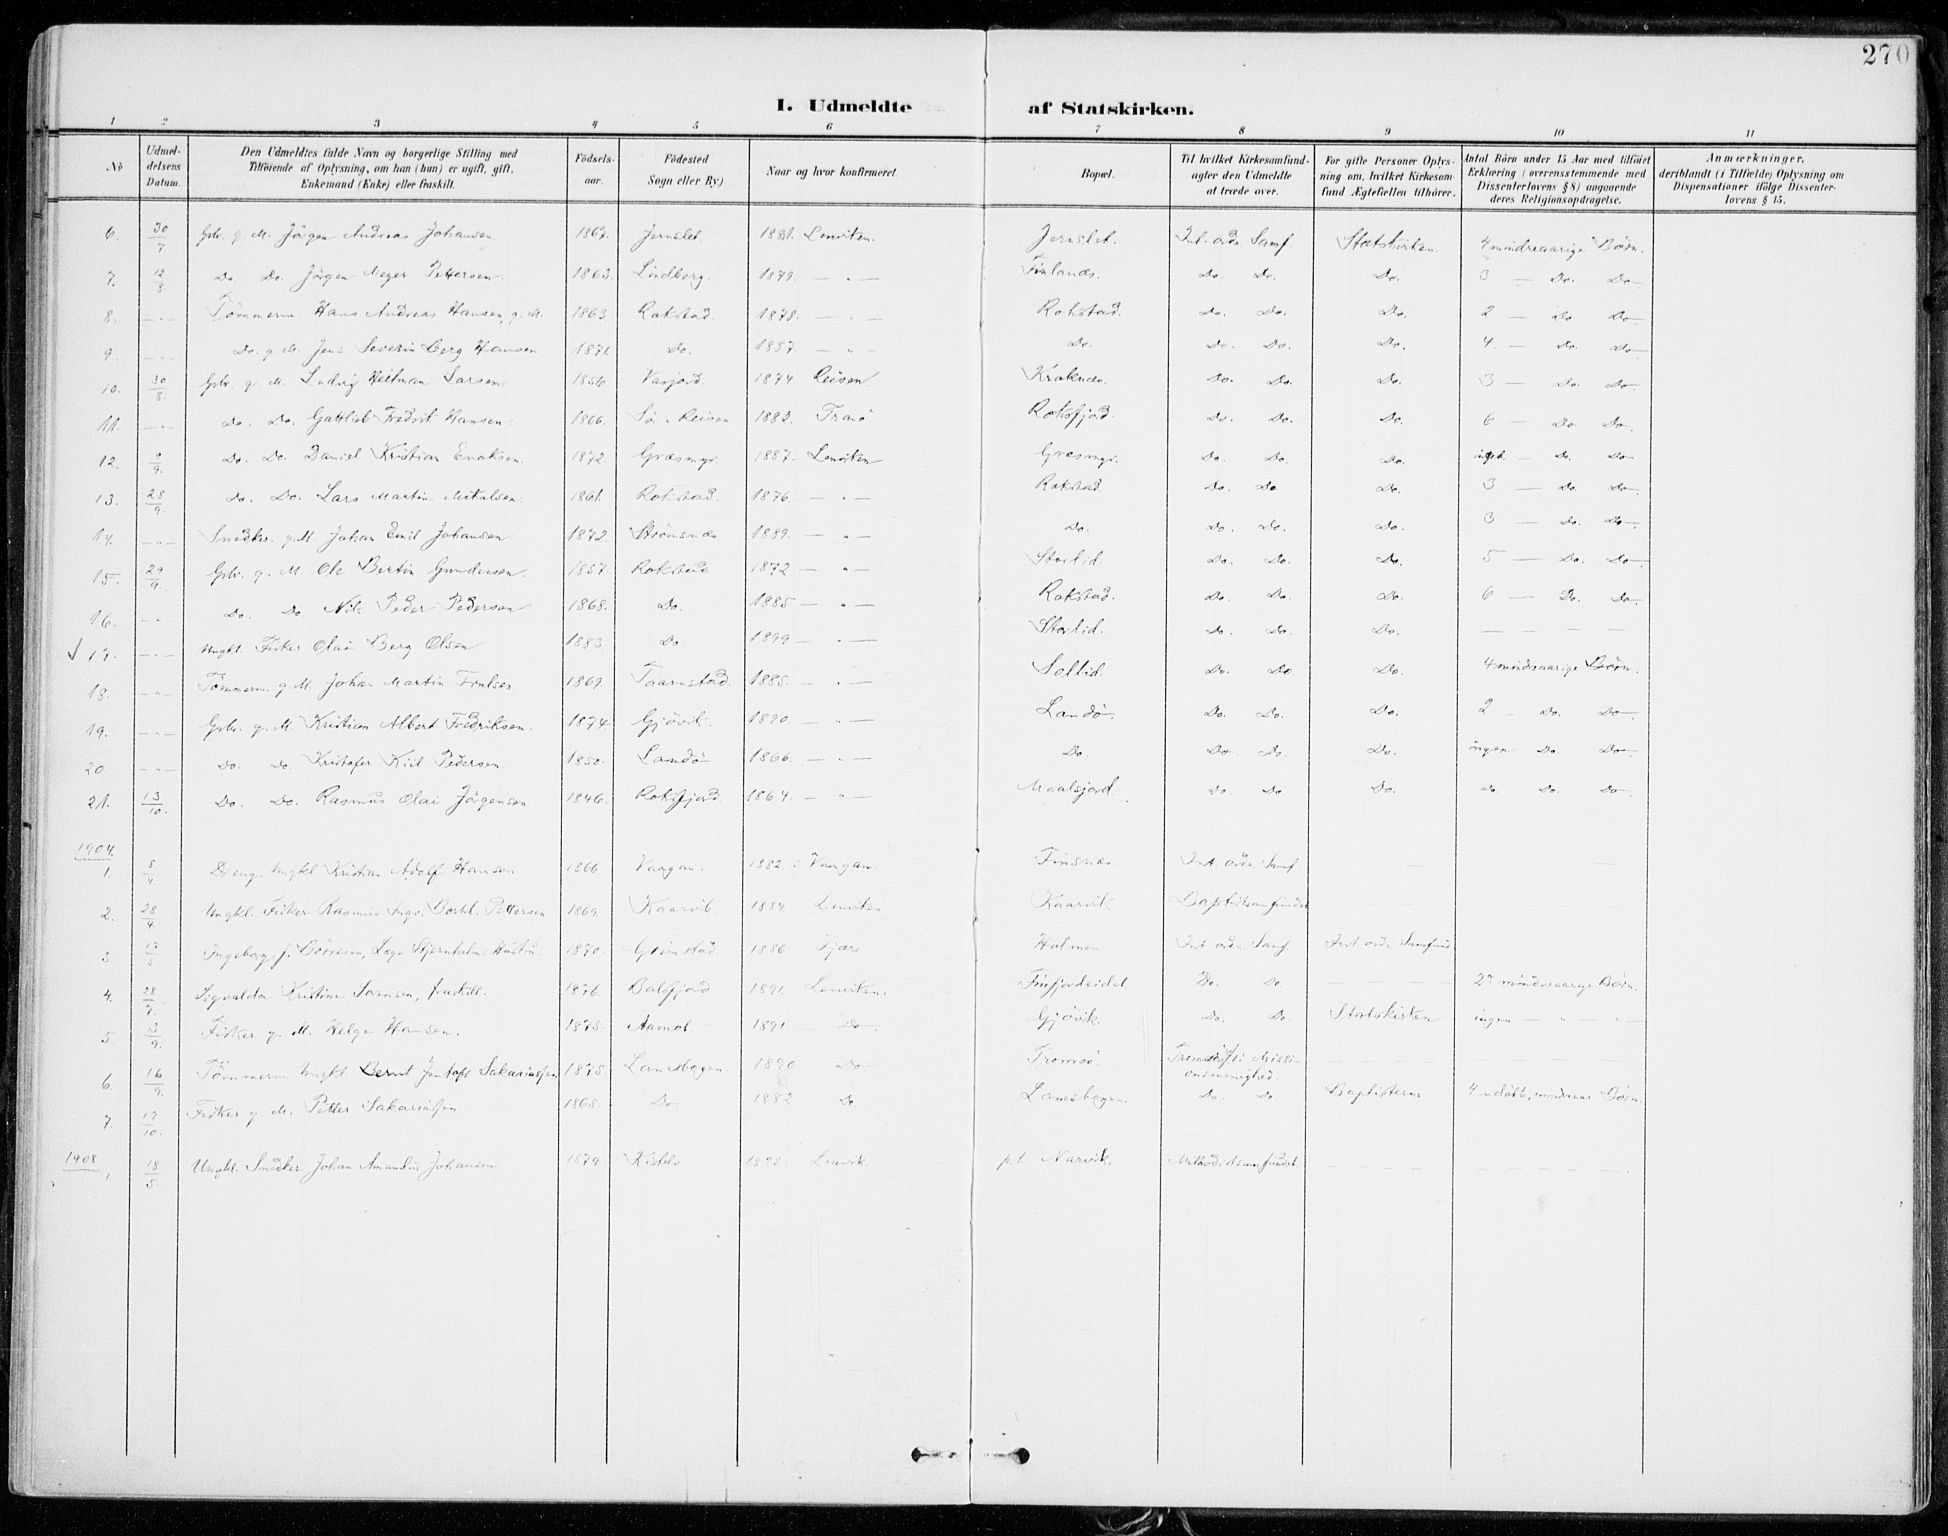 270
I. Udmeldte af Statskirken.
1 2 3 4 5 6 7 8 9 10 11
No
Udmeldelsens Datum.
Den Udmeldtes fulde Navn og borgerlige Stilling med
Tilføiende af Oplysning, om han (hun) er ugift, gift,
Enkemand (Enke) eller fraskilt.
Fødsels-
aar.
Fødested
Sogn eller By)
Naar og hvor konfirmeret.
Bopæl.
Til hvilket Kirkesamfund-
agter den Udmeldte
at træde over.
For gifte Personer Oplys-
ning om, hvilket Kirkesam-
fund Ægtefællen tilhører.
Antal Børn under 15 Aar med tilføiet
Erklæring (overensstemmende med
Dissenterlovens § 8) angaaende
deres Religionsopdragelse.
Anmærkninger,
deriblandt (i Tilfælde) Oplysning om
Dispensationer ifølge Dissenter-
lovens § 15.
6. 30/7 Gbr. g. M. Jørgen Andreas Johansen 1867. Jernslet. 1881. Lenviken. Jernslet. Int. ordn Samf. Statskirken 4 mindreaarige Børn.
7. 12/8 Do Do. Jørgen Meyer Pettersen. 1863. Lindberg. 1879. — " — Finlands. Do. Do. Do. 3 — Do. Do—
8. —"— Tømmerm. Hans Andreas Hansen, g. M. 1863. Rokstad. 1878. — " — Rokstad. Do. Do. Do. 2 — Do Do—
9. —"— Do. g. M. Jens Severin Berg Hansen. 1871. Do. 1887 — " — Do. Do. Do. Do. 4. — Do. Do—
10. 30/8. Gbr. g. M. Ludvig Heitman Larsen. 1856 Vasjord. 1874 Reisen. Kraknes. Do. Do. Do. 3 — Do. Do—
11. —"— Do. Do. Gottlieb Fredrik Hansen. 1866. Sø. Reisen 1882. Tranø Roksfjod. Do. Do. Do. 6 — Do Do.
12. /9. Do. Do. Daniel Kristian Enoksen. 1872. Græsmyr. 1887. Lenviken Græsmyr. Do. Do. Do. — Do. Do—
13. 28/9. Do. Do. Lars Martin Mikalsen. 1861. Rokstad. 1876. — " — Rokstad. Do. Do Do. 3 — Do. Do—.
14. —"— Snedker. g. M. Johan Emil Johansen. 1872. Strømsnes 1889. — " — Do. Do. Do. Do. 3 — Do. Do—.
15. 29/9. Gbr. g. M. Ole Bertin Gundersen. 1857. Rokstad 1872 — " — Storlid. Do. Do. Do. 5 — Do. Do—.
16. —"— Do. Do Nils Peder Pedersen 1868. Do. 1885 — " — Rokstad. Do. Do. Do. 6 — Do. Do—.
17. —"— Ungkl. Fisker Olai Berg Olsen 1883. Do 1899 — " — Storlid. Do. Do. Do. — — — —
18. —"— Tømmerm. g. M. Johan Martin 1869. Taarnstad. 1885. — " — Sollid. Do. Do Do. 4 mindreaarige Børn.
19. —"— Gbr. g. M. Kristian Albert Fredriksen. 1874. Gjøvik. 1890 — " — Landø. Do. Do. Do. 2 — Do. Do—.
20 —"— Do. Do. Kristofer Kiil Pedersen. 1850. Landø 1866. — " — Do. Do. Do. Do. ingen Do Do—
21. 13/10. Do. Do. Rasmus Olai Jørgensen 1846. Roksfjord. 1864. — " — Maalsjord. Do. Do. Do. Do. Do. Do—.
1904.
1. 8/4 Dreng. Ungkl Kristian Adolf Hansen 1866 Vaagan. 1882 i Vaagan. Finsnes. Int. ordn Samf. — —
2. 28/4. Ungkl. Fisker Rasmus Ingv. Pettersen. 1869. Kaarvik. 1884. Lenviken Kaarvik. Baptistsamfundet — — — —
3 /5 Ingeborg, f. Børresen, Læge Stjernholms Hustru. 1870. Grimstad. 1886. Fjære. Holmen Int. ordn Samf. Int. ordn Samfund.
4. 28/7. Sigvalda Kristine Sørensen, fraskill. 1876. Balsfjord 1891. Lenviken. Finfjordeidet Do. Do. — — — 2 mindreaarige Børn.
5. /9. Fisker g. M. Helge Hansen. 1875 Aamot 1891 Do—. Gjøvik. Do. Do. Statskirken ingen — " — " —
6. 16/9. Tømmerm. Ungkl Bernt Jentoft Sakariassen 1878. Lanesbogen. 1890 Do— Tromsø. Tromsø fri Missi-
onsmenighed. — — — —
7. /10. Fisker g. M. Petter Sakariassen 1865. Do 1882 Do Lanesbogen. Do. Do. Baptisterne. 4 udøbte, mindreaar Børn.
1908.
1 18/5 Ungkl. Snedker Johan Amandus Johansen 1879 1895 Lenvik. p. t. Narvik. Methodistsamfundet. — — — —